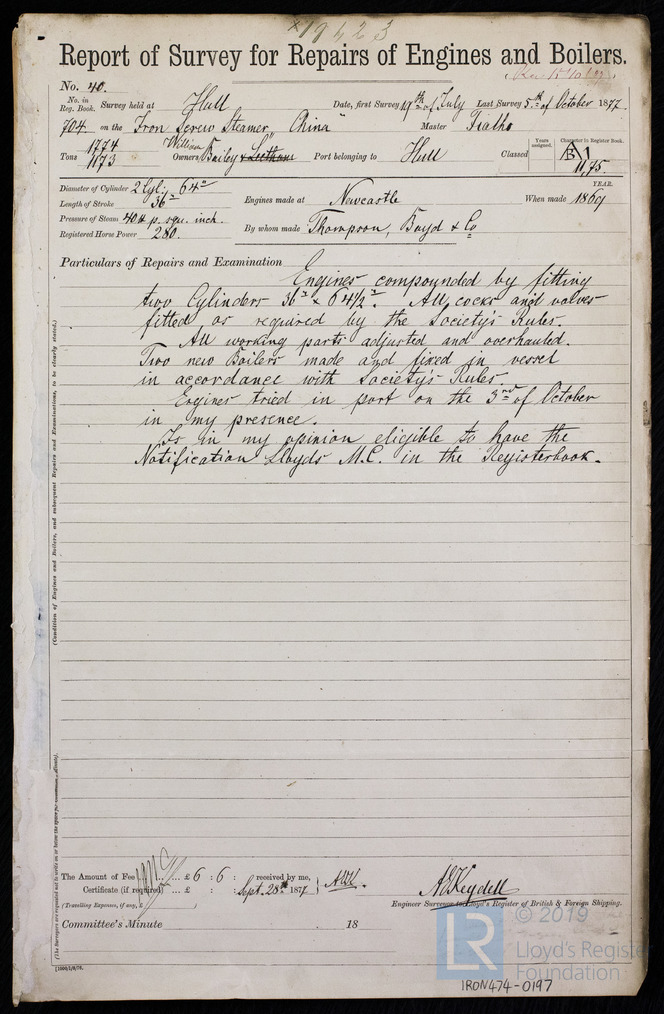 * 19423
Report of Survey for Repairs of Engines and Boilers.
No. 40.
Rec 15/10/77
No. in Reg. Book. Survey held at Hull Date, first Survey 19th of July Last Survey 5th of October 1877
704 on the Iron Screw Steamer "China" Master
Tons 1774 1173 Owners William Bailey & Leetham Port belonging to Hull Classed Years assigned. Character in Register Book. A1 11,75.
Diameter of Cylinder 2 Cyl: 64"
Length of Stroke 36"
Pressure of Steam 40# p. squ. inch.
Registered Horse Power 280.
Engines made at Newcastle When made YEAR. 1869
By whom made Thompson, Boyd & Co
Particulars of Repairs and Examination Engines compounded by fitting
two Cylinders 36" & 64 1/2". All cocks and valves
fitted as required by the Society's Rules.
All working parts adjusted and overhauled.
Two new Boilers made and fixed in vessel
in accordance with Society's Rules.
Engines tried in port on the 3rd of October
in my presence.
Is in my opinion eligible to have the
Notification Lloyds M.C. in the Registerbook.
(Condition of Engines and Boilers, and subsequent Repairs and Examinations, to be clearly stated.)
The Amount of Fee ... £ 6 : 6 : received by me,
Certificate (if required) ... £ : : Sept. 28th 1877
(Travelling Expenses, if any, £
A. E. Keydell
Engineer Surveyor to Lloyd's Register of British & Foreign Shipping.
Committee's Minute 18
© 2019
LR
Lloyd's Register
Foundation
IRON474-0197